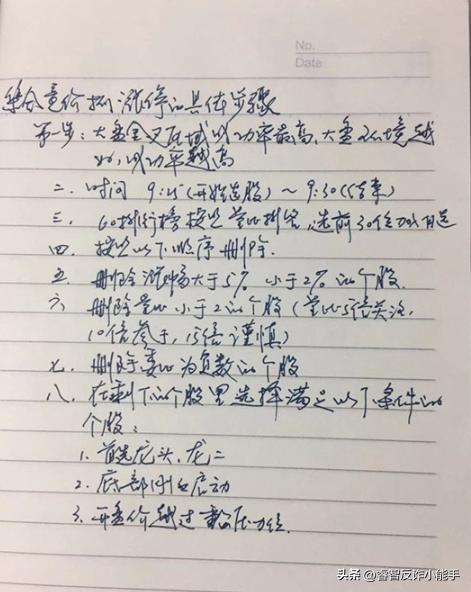 No.
Date
集合竞价抓涨停的具体步骤
第一步:大盘金叉区域成功率最高、大盘环境越
好,成功率越高
二、时间 9:25(开始选股)~9:30(结束)
三、60排行榜按照量比排名,选前30位加自选
四、按照以下顺序删除.
五、删除涨幅大于5% 小于2%的个股.
六、删除量比小于2的个股(量比5倍关注,
10倍参于,15倍谨慎)
七、删除委比为负数的个股
八、在剩下的个股里选择满足以下条件的
个股:
1. 首选龙头、龙二
2. 底部刚刚启动
3. 开盘价越过 压力位.
头条@睿智反诈小能手